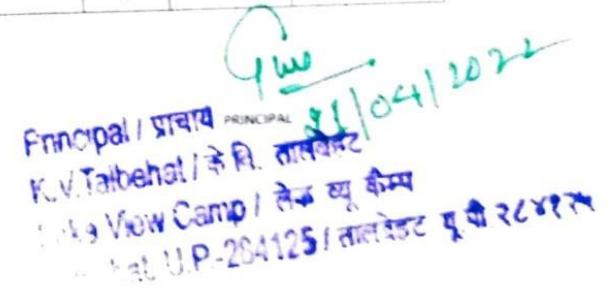 21/04/2022
Principal / प्राचार्य PRINCIPAL
K.V.Talbehat / के वि. तालबेहट
View Camp / लेक व्यू कैम्प
U.P.-284125 / तालबेहट यू पी २८४१२५